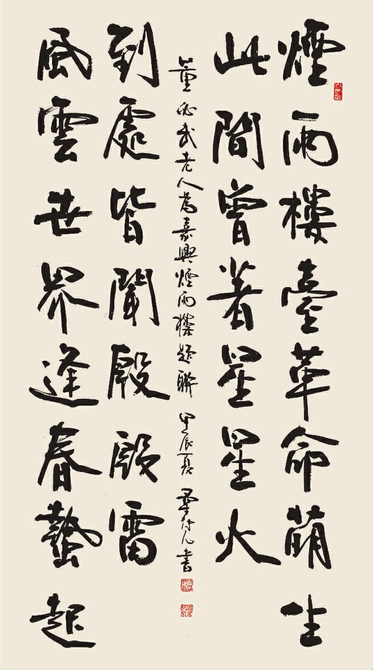 煙雨樓臺革命萌生
此間曾著星星火
風雲世界逢春蟄起
到處皆聞殷殷雷
董必武老人為嘉興煙雨樓題聯 甲辰夏 書